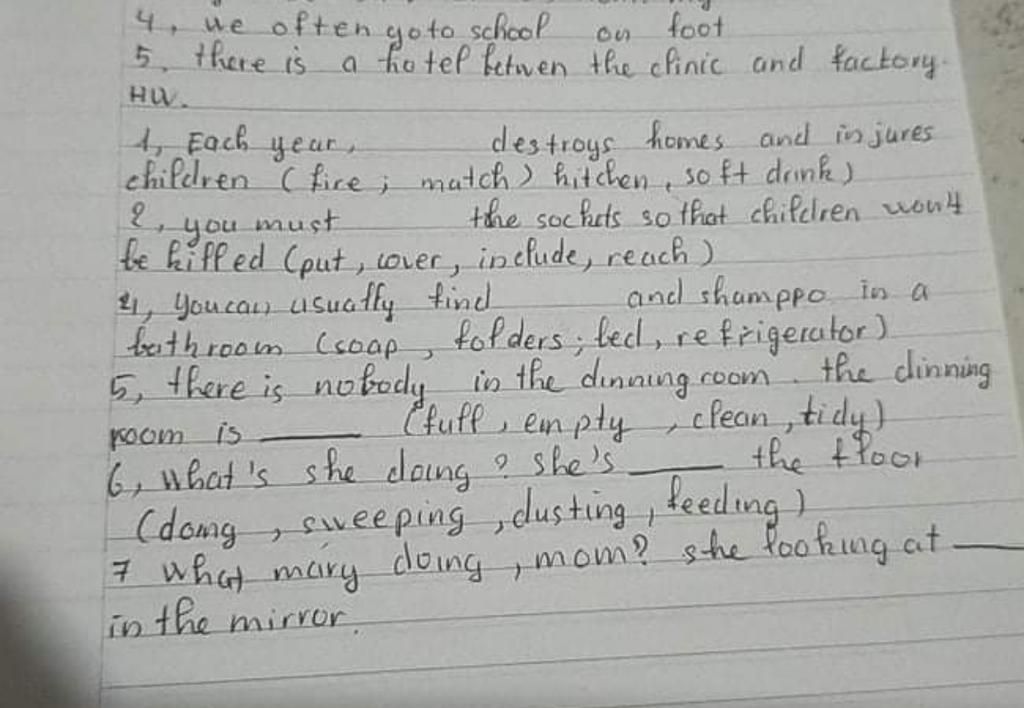 4, we often go to school on foot
5. there is a hotel betwen the clinic and factory.
HW.
1, Each year, destroys homes and injures
children (fire; match) kitchen, soft drink)
2, you must the sockets so that children
be killed (put, cover, include, reach)
4, you can usually find and shamppo in a
bathroom (soap, folders; bed, refrigerator)
5, there is nobody in the dinning room. the dinning
room is ____ (full, empty, clean, tidy)
6, What's she doing? she's ____ the floor
(doing, sweeping, dusting, feeding)
7 What mary doing, mom? she looking at ____
in the mirror.